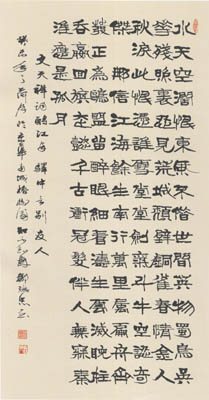 水天空闊恨東風不借世間英物蜀鳥吳
花殘照裏忍見荒城頹壁銅雀春情金人
秋淚此恨憑誰雪堂堂劍氣斗牛空認奇
傑那信江海餘生南行萬里屬扁舟齊
發正為鷗盟留醉眼細看濤生雲滅睨柱
吞嬴回旗走懿千古衝冠髮伴人無寐秦
淮應是孤月
文天祥詞酹江月驛中言別友人